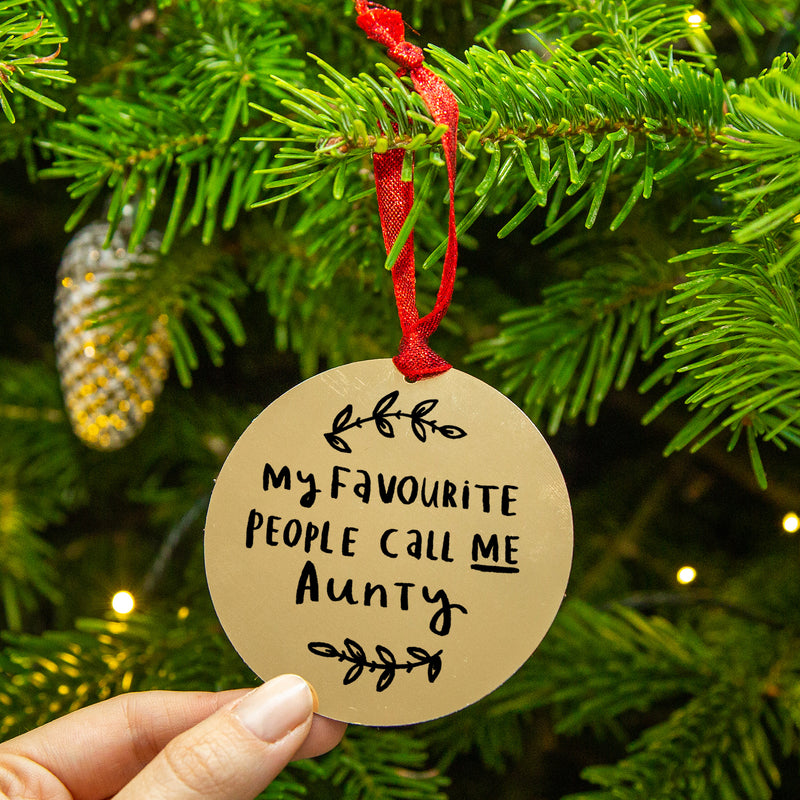 My FAVOURiTE
PEOPLE Call ME
AunTy